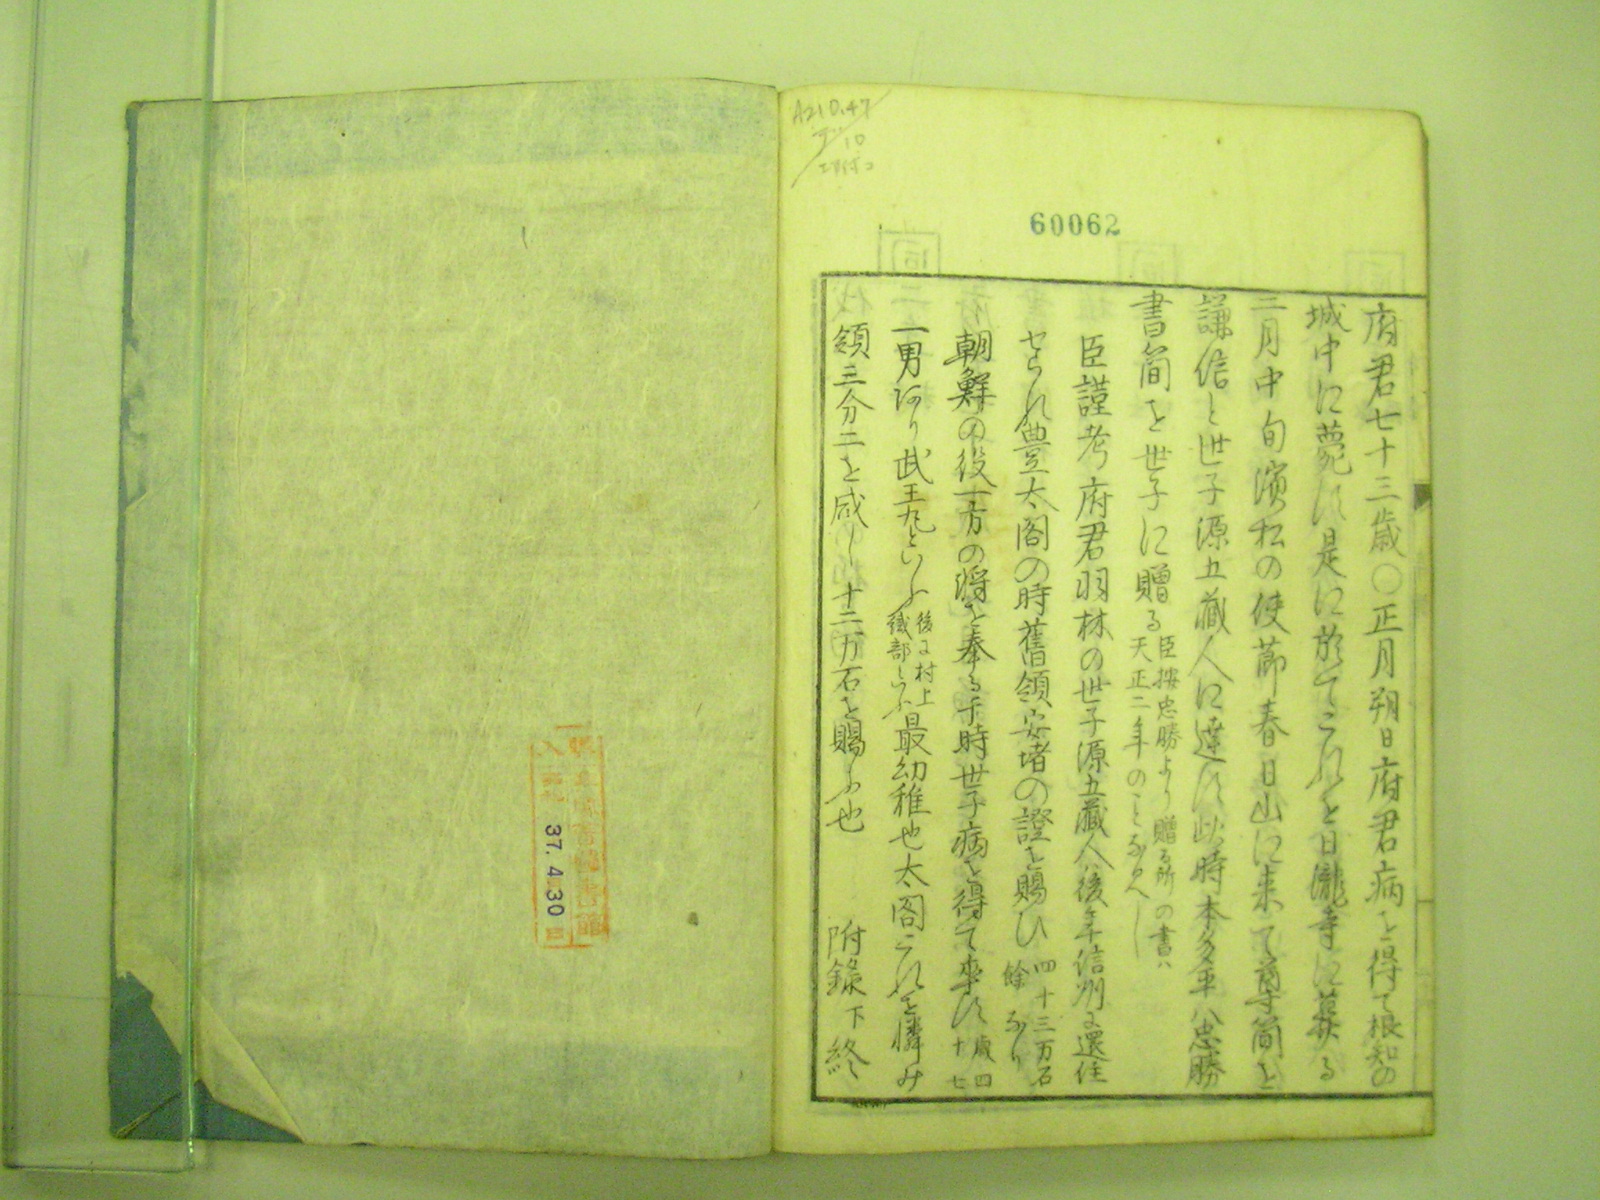 A210.47
10
60062
府君七十三歳〇正月朔日府君病を得て根知の
城中に薨ス是に於てこれを日瀧寺に葬る
三月中旬濱松の使節春日山に来て尊簡を
謙信と世子源五蔵人に達ス此時本多平八忠勝
書簡を世子に贈る
臣按忠勝より贈る所の書ハ
天正二年のことなるへし
臣謹考府君羽林の世子源五蔵人ハ後年信州に還住
せられ豊太閤の時舊領安堵の證を賜ひ
四十三万石
餘なり
朝鮮の役一方の将を奉る于時世子病を得て卒ス
歳四
十七
一男あり武王丸といふ
後に村上
織部といふ
最幼稚也太閤これを憐み
領三分二を減し十二万石を賜ふ也
附録下終
37.4.30